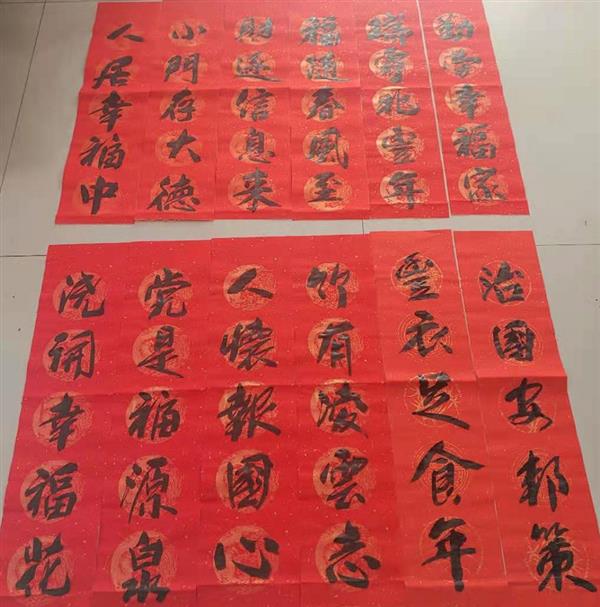 勤幸福家
瑞雪兆豐年
福随春風至
財逐信息来
小門存大德
人居幸福中
治國安邦策
豐衣足食年
竹有凌雲志
人懷報國心
党是福源泉
浇開幸福花